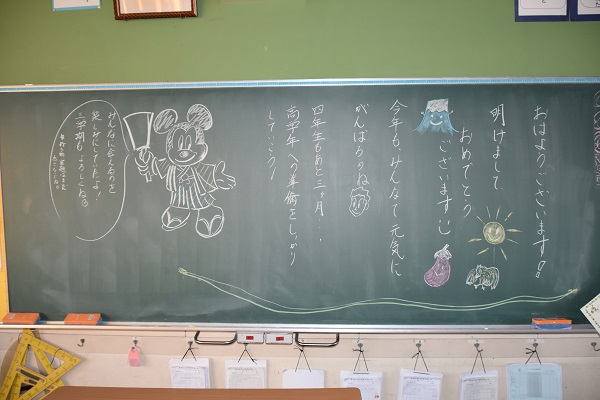 おはようございます!
明けまして
おめでとう
ございます
今年も、みんなで元気に
がんばろうね
四年生もあと三ヶ月・・・
高学年への準備をしっかり
していこう!
みんなに会えるのを
楽しみにしていたよ!
三学期もよろしくね